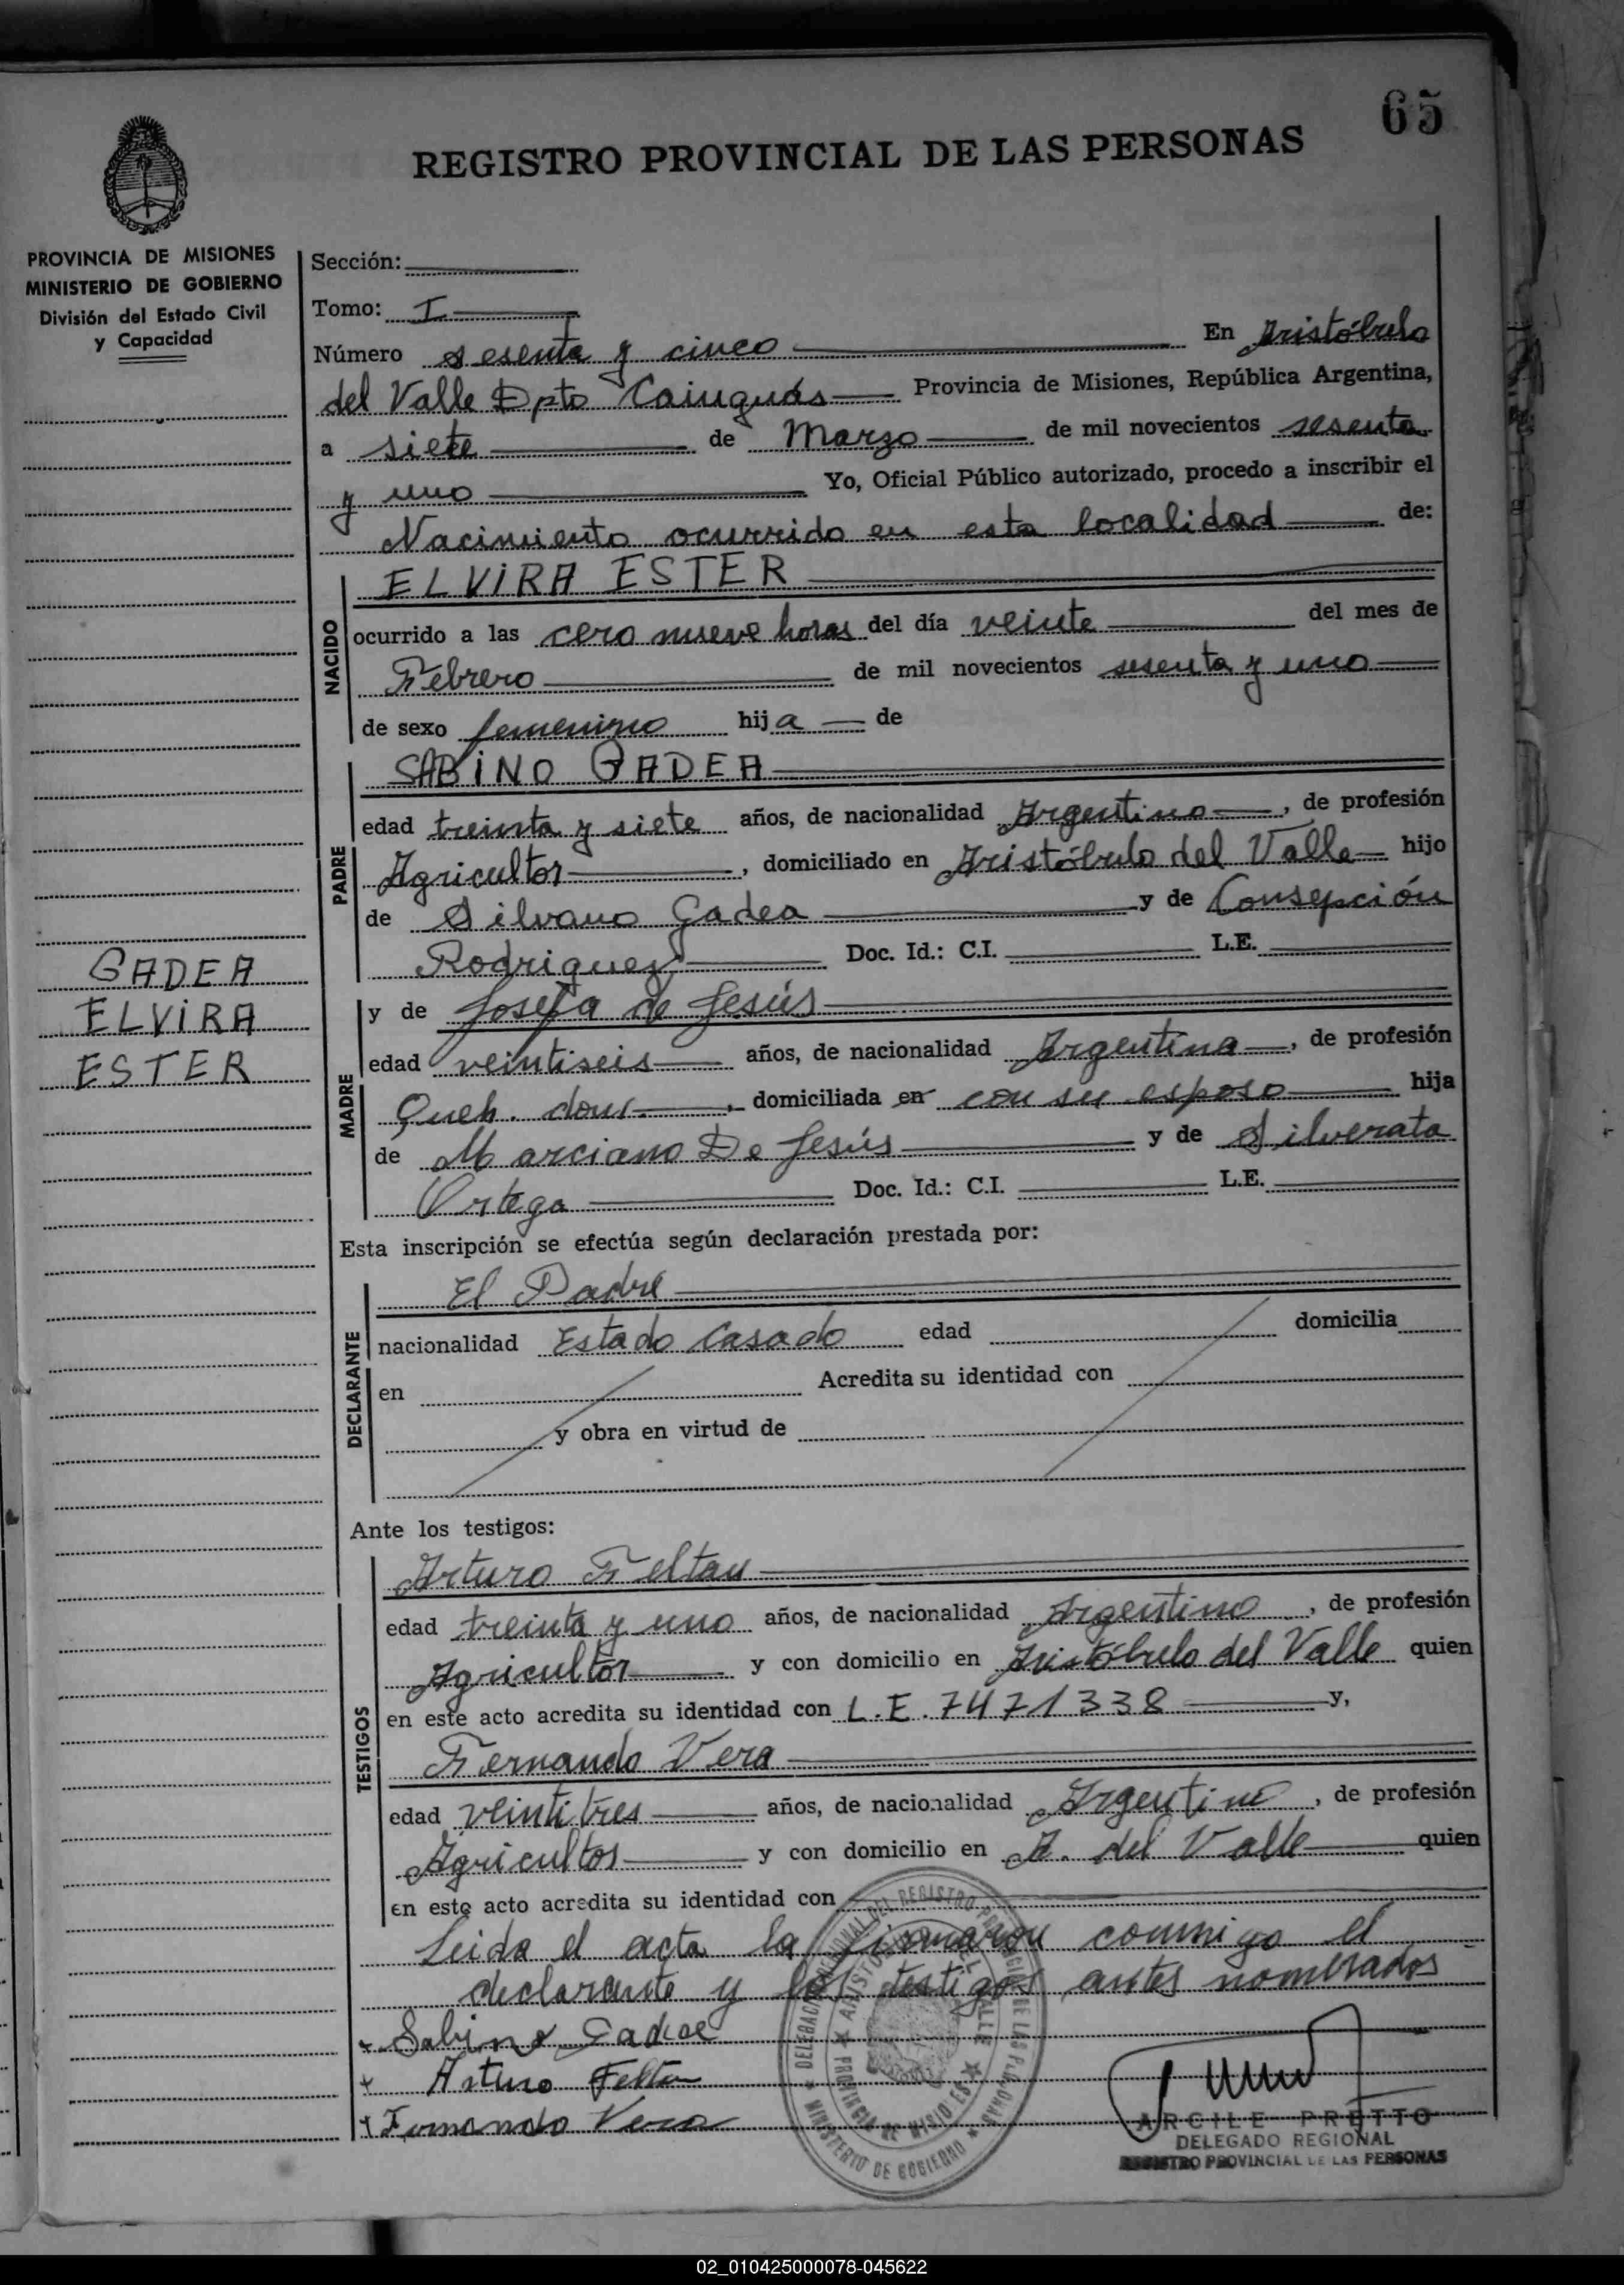 65
REGISTRO PROVINCIAL DE LAS PERSONAS
PROVINCIA DE MISIONES
MINISTERIO DE GOBIERNO
División del Estado Civil
y Capacidad
Sección:
Tomo: I
Número sesenta y cinco En Aristóbulo
del Valle Dpto Cainguás Provincia de Misiones, República Argentina,
a siete de Marzo de mil novecientos sesenta
y uno Yo, Oficial Público autorizado, procedo a inscribir el
Nacimiento ocurrido en esta localidad de:
NACIDO
ELVIRA ESTER
ocurrido a las cero nueve horas del día veinte del mes de
Febrero de mil novecientos sesenta y uno
de sexo femenino hija de
PADRE
SABINO GADEA
edad treinta y siete años, de nacionalidad Argentino, de profesión
Agricultor, domiciliado en Aristóbulo del Valle hijo
de Silvano Gadea y de Consepción
Rodriguez Doc. Id.: C.I. L.E.
GADEA
ELVIRA
ESTER
MADRE
y de Josefa de Jesús
edad veintiseis años, de nacionalidad Argentina, de profesión
Queh. dom., domiciliada en con su esposo hija
de Marciano De Jesús y de Silverata
Ortega Doc. Id.: C.I. L.E.
Esta inscripción se efectúa según declaración prestada por:
DECLARANTE
El Padre
nacionalidad Estado Casado edad domicilia
en Acredita su identidad con
y obra en virtud de
Ante los testigos:
TESTIGOS
Arturo Feltan
edad treinta y uno años, de nacionalidad Argentino, de profesión
Agricultor y con domicilio en Aristóbulo del Valle quien
en este acto acredita su identidad con L.E. 7471338 y,
Fernando Vera
edad veintitres años, de nacionalidad Argentino, de profesión
Agricultor y con domicilio en A. del Valle quien
en este acto acredita su identidad con
Leida el acta la firmaron conmigo el
declarante y los testigos antes nombrados
Sabino Gadea
Arturo Feltan
Fernando Vera
DELEGACION REGIONAL DEL REGISTRO PROVINCIAL DE LAS PERSONAS
MINISTERIO DE GOBIERNO
ARISTOBULO DEL VALLE
PROVINCIA DE MISIONES
ARCILE PRETTO
DELEGADO REGIONAL
REGISTRO PROVINCIAL DE LAS PERSONAS
02_010425000078-045622